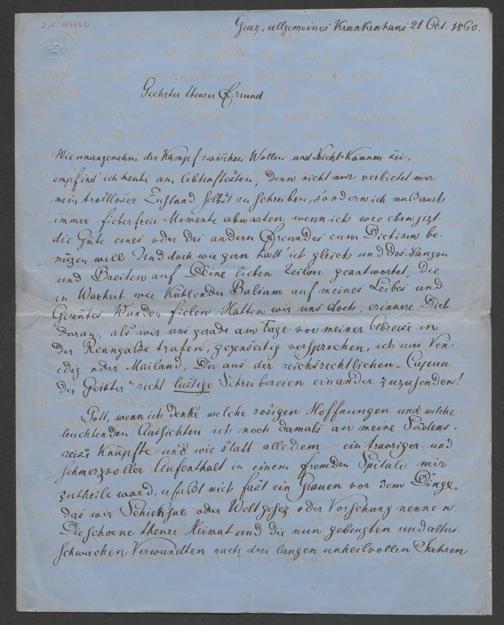 Graz, allgemeines Krankenhaus 21 Oct. 1860.
theurer Freund.
Wie unangenehm der Kampf zwischen Wollen und Nicht-Können sei,
empfind ich heute am lebhaftesten, denn nicht nur verbietet mir
mein trostloser Zustand selbst zu schreiben, sondern ich muß auch
immer fieberfreie Momente abwarten wenn ich wie eben jetzt
die Güte eines oder des andern Freundes zum Dictiren be-
nüzen will. Und doch wie gern hätt ich gleich und des Langen
und Breiten auf Deine lieben Zeilen geantwortet, die
in Wahrheit wie kühlender Balsam auf meines Leibes und
Gemütes Wunden fielen. Hatten wir uns doch, erinnere Dich
daran, als wir uns gerade am Tage vor meiner Abreise in
der Renngasse trafen, gegenseitig versprochen, ich aus Ven-
edig oder Mailand, Du aus der reichsrechtlichen
der Geister recht lustige Schreibereien einander zuzusenden!
Gott, wenn ich denke welche rosigen Hoffnungen und welche
leuchtenden Aussichten ich noch damals an meine Südens-
reise knüpfte und wie statt alledem ein trauriger und
schmerzvoller Aufenthalt in einem fremden Spitale mir
zutheile ward, erfaßt mich fast ein Grauen vor dem Dinge,
das wir Schicksal oder Weltgesez oder Vorsehung nennen.
Die schoene theure Heimat und die nun gebeugten und alters-
schwachen Verwandten nach drei langen unheilvollen Jahren